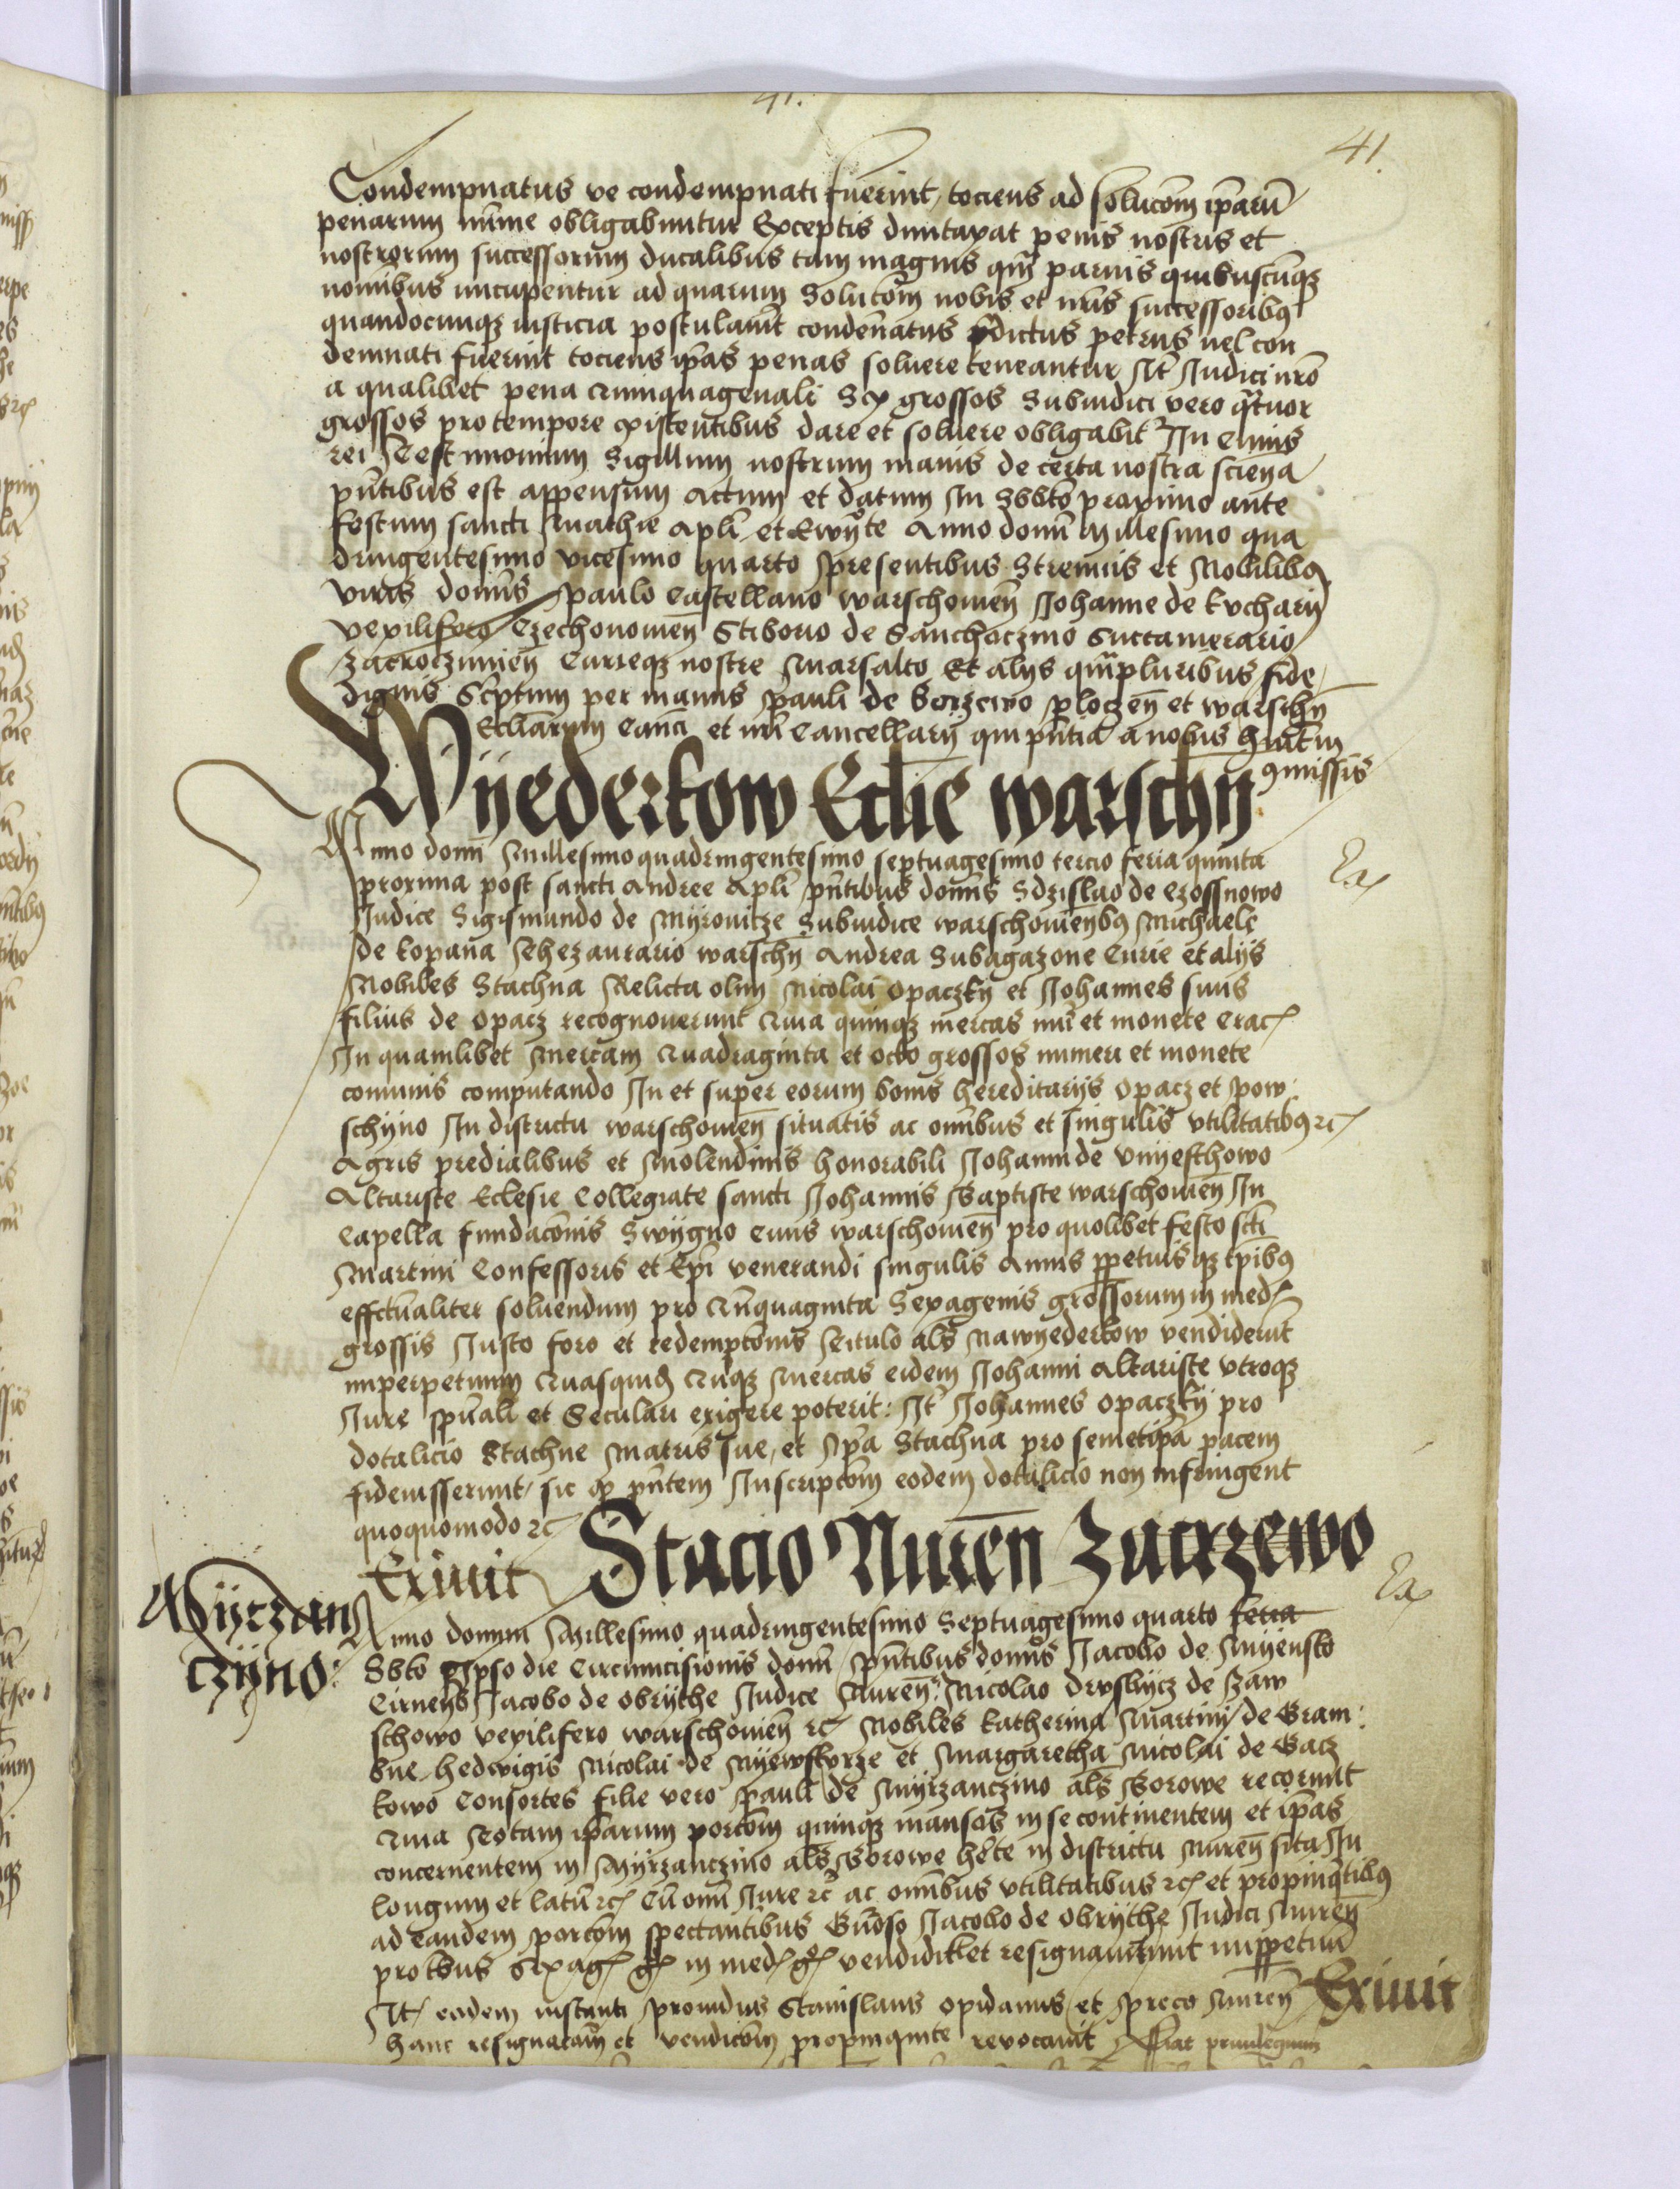 41.
41.
Condempnatus ve condempnati fuerint, tociens ad soluc̃om ip̃arũ
penarum mĩme obligabuntur Exceptis duntaxat penis nostris et
nostrorum successorum ducalibus tam magnis qm̃ paruis quibuscũqz
nomĩbus nuncupentur ad quarum Soluc̃om nobis et nr̃is successoribus
quandocunqz iusticia postulauit̃ condem̃natus p̃dictus petrus uel con
demnati fuerint tociens ip̃as penas soluere teneantur It̃ Iudici nr̃o
a qualibet pena quinquagenali Sex grossos Subiudici vero qr̃tuor
grossos pro tempore existentibus dare et soluere obligabit̃ In Cuius
rei Testimonium Sigillum nostrum maius de certa nostra sciencia
pñtibus est appensum Actum et datum In Sbbto proximo ante
festum sancti Mathie Apl̃i et Ewg̃te Anno domĩ Millesimo qua
dringentesimo vicesimo quarto presentibus Strenuis et Nobilibus
viris domĩs Paulo Castellano warschouien̄ Iohanne de kvchary
vexilifero Czechonouien̄ Stiborio de Sanchoczino Succamerario
zacroczimien̄ Curieqz nostre Marsalco Et alys qm̃pluribus fide
dignis Sc̃ptum per manus Pauli de Borzewo plocẓen̄ et warschn̄
Ecl̃iarum Canc̃i et nr̃i Cancellary qui pñtia a nobis hũit in
9missis
Wyederkow Eclĩe warschn̄
Anno domĩ Millesimo quadringentesimo septuagesimo tercio feria quinta
proxima post sancti Andree Apl̃i pñtibus domĩs Sdzislao de Czossnowo
Iudice Sigismundo de Myrovicze Subiudice warschouien̄bus Michaele
de kopana Thezaurario warschn̄ Andrea Subagazone Curie et alys
Nobiles Stachna Relicta olim Nicolai Opaczky et Iohannes suus
filius de Opacz recognouerunt quia quinqz mercas nũi et monete Crac
In quamlibet Mercam quadraginta et octo grossos numeri et monete
comunis computando In et super eorum bonis hereditarys Opacz et pow
schyno In districtu warschouien̄ situatis ac omĩbus et singulis vtilitatibus rc
Agris predialibus et Molendinis honorabili Iohanni de Vnyesthowo
Altariste Eclesie Collegiate sancti Iohannis Baptiste warschouien̄ In
Capella fundac̃onis Swygno Ciuis warschouien̄ pro quolibet festo scti
Martini Confessoris et Ep̃i venerandi singulis Annis ppetuisqz tp̃ibus
effectualiter soluendum pro qũnquaginta Sexagenis grossorum in med
grossis Iusto foro et redempcõnis Titulo als Nawyederkow vendiderũt
imperpetuum Quasquid̃ qũqz Mercas eidem Iohanni Altariste vtroqz
Iure spũali et Seculari exigere poterit: It̃ Iohannes Opaczky pro
dotalicio Stachne Matris sue, et Ip̃a Stachna pro semetip̃a pacem
fideiusserunt, sic qp pñtem Inscripc̃om eodem dotalicio non infringent
quoquomodo rc
Exiuit Stacio Nuren̄ Zacrzewo
Myrzan
czyno:
Anno domini Millesimo quadringentesimo Septuagesimo quarto feria
Sbto Ipso die Circumcisionis domĩ pñtibus domĩs Iacobo de Myensko
Cirnens̄ Iacobo de Obrythe Iudice Nuren̄ Nicolao Drvslvycz de Zaw
schowo vexilifero warschouien̄ rc Nobiles katherina Martini de Gram
bne, hedwigis Nicolai de Nyewskorze et Margaretha Nicolai de Gacz
kowo Consortes filie vero Pauli de Myrzanczino als Borowe recorũnt
quia Totam ip̃arum porc̃om quinqz mansos in se continentem et ip̃as
concernentem in Myrzanczino als Borowe hr̃te in districtu Nuren̄ sita In
longum et latũ rc Cũ omĩ Iure rc ac omĩbus vtilitatibus rc et propinqr̃tibus
ad eandem porc̃om spectantibus Gñoso Iacobo de Obrythe Iudici Nuren̄
pro tbus sexag gr in med gr vendidit et resignauerunt imppetuũ
It̃ eodem instanti prouidus Stanislaus opidanus et Preco Nuren̄ Exiuit
hanc resignac̃om et vendic̃om propinquitte revocauit fiat priuilegium